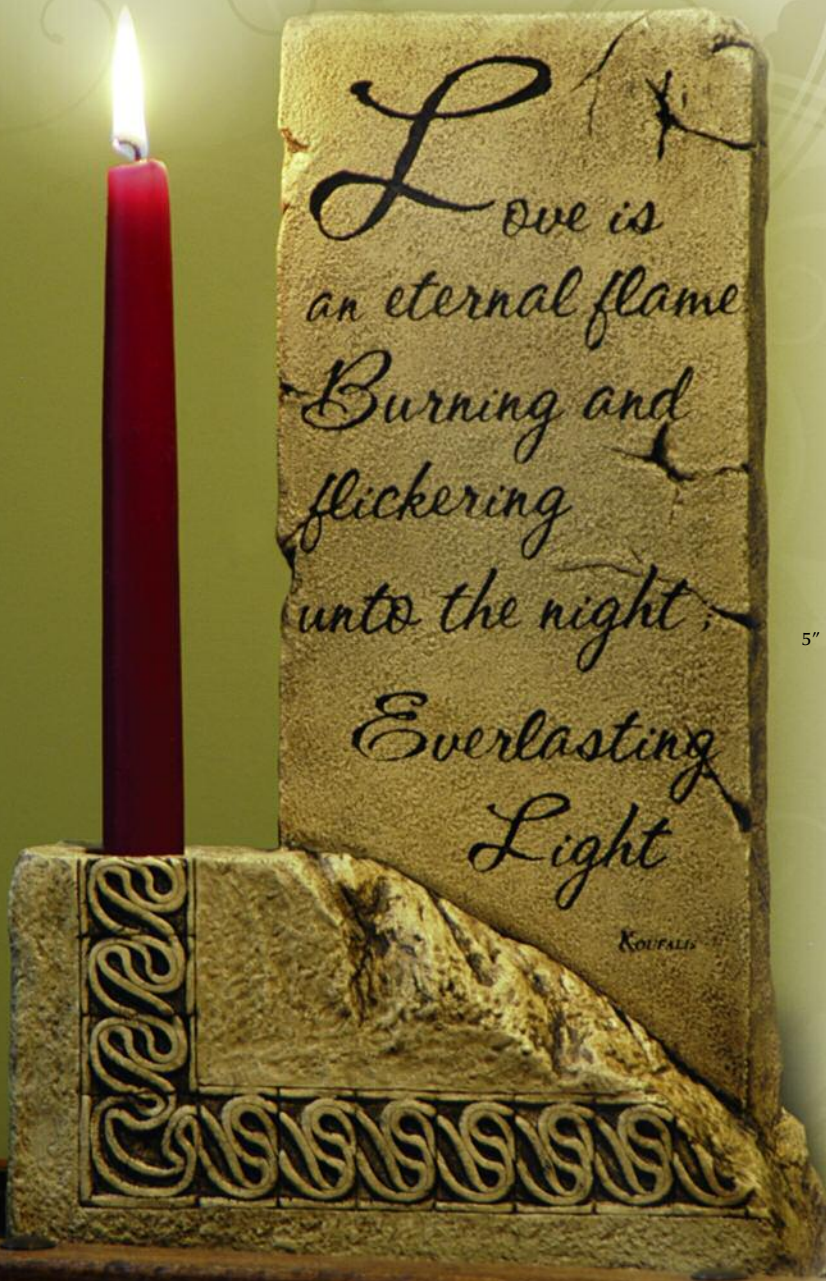 Love is
an eternal flame
Burning and
flickering
unto the night;
Everlasting
Light
KOUFALIS
5″